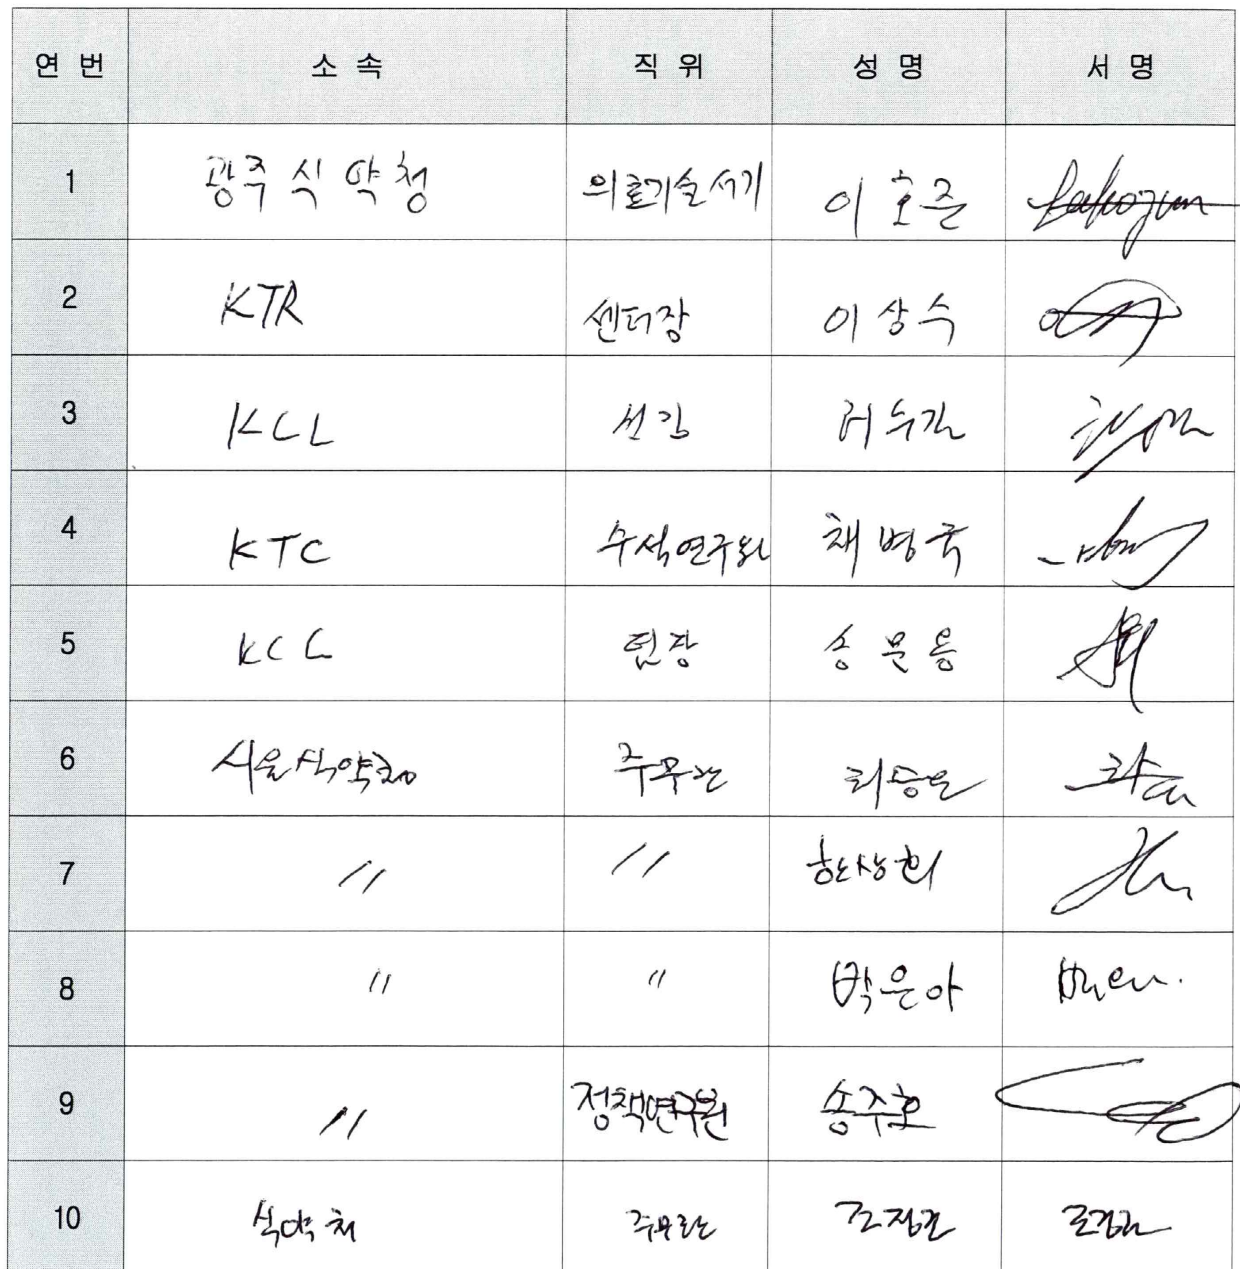 연 번 소 속 직 위 성 명 서 명
1 광주 식 약 청 의료기술서기 이 호 준
2 KTR 센터장 이 상 수
3 KCL 선임
4 KTC 수석연구원 채 병 국
5 KCL 팀장 송 문 용
6 서울식약청 주무관
7 〃 〃 한상희
8 〃 〃 박은아
9 〃 정책연구원 송주호
10 식약처 주무관